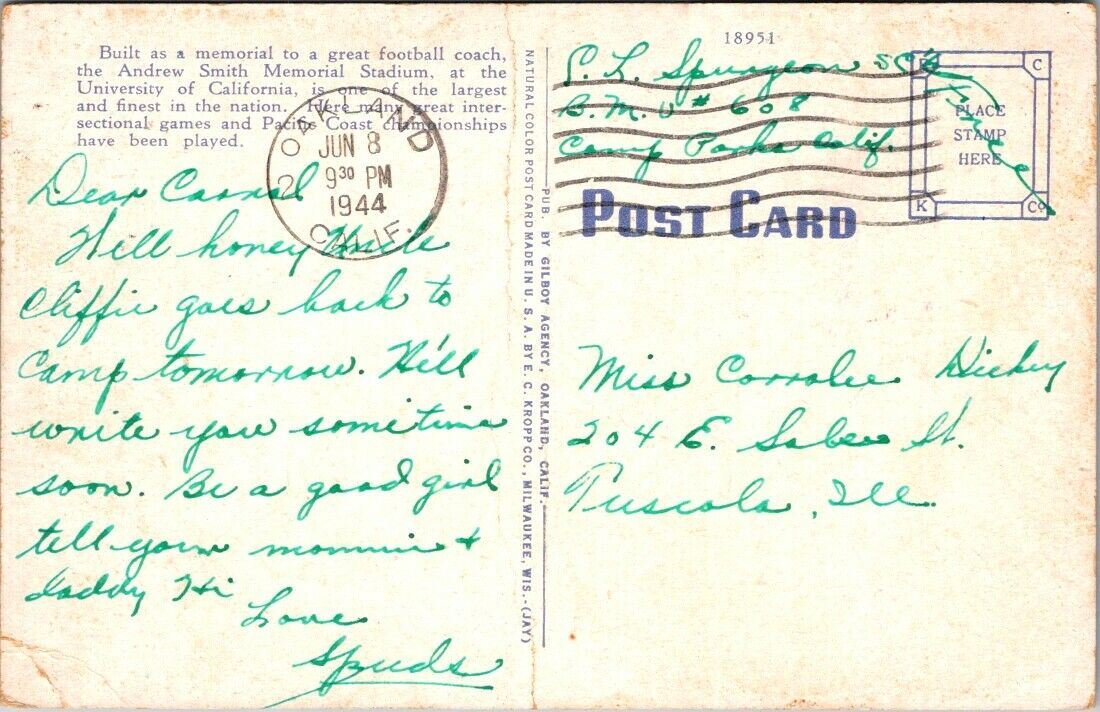 Built as a memorial to a great football coach,
the Andrew Smith Memorial Stadium, at the
University of California, is one of the largest
and finest in the nation. Here many great inter-
sectional games and Pacific Coast championships
have been played.
OAKLAND
2
JUN 8
9³⁰ PM
1944
CALIF.
Dear Corral
Well honey Uncle
Cliffie goes back to
Camp tomorrow. He'll
write you sometime
soon. Be a good girl
tell your mommie +
daddy Hi
Love
Spuds
NATURAL COLOR POST CARD MADE IN U. S. A. BY E. C. KROPP CO., MILWAUKEE, WIS.-(JAY)
PUB. BY GILBOY AGENCY, OAKLAND, CALIF.
18951
C. L. Spurgeon
B.M.U # 608
Camp Parks Calif.
Free
C
PLACE
STAMP
HERE
K
Co
POST CARD
Miss Corralee Hickey
204 E. St.
Tuscola, Ill.